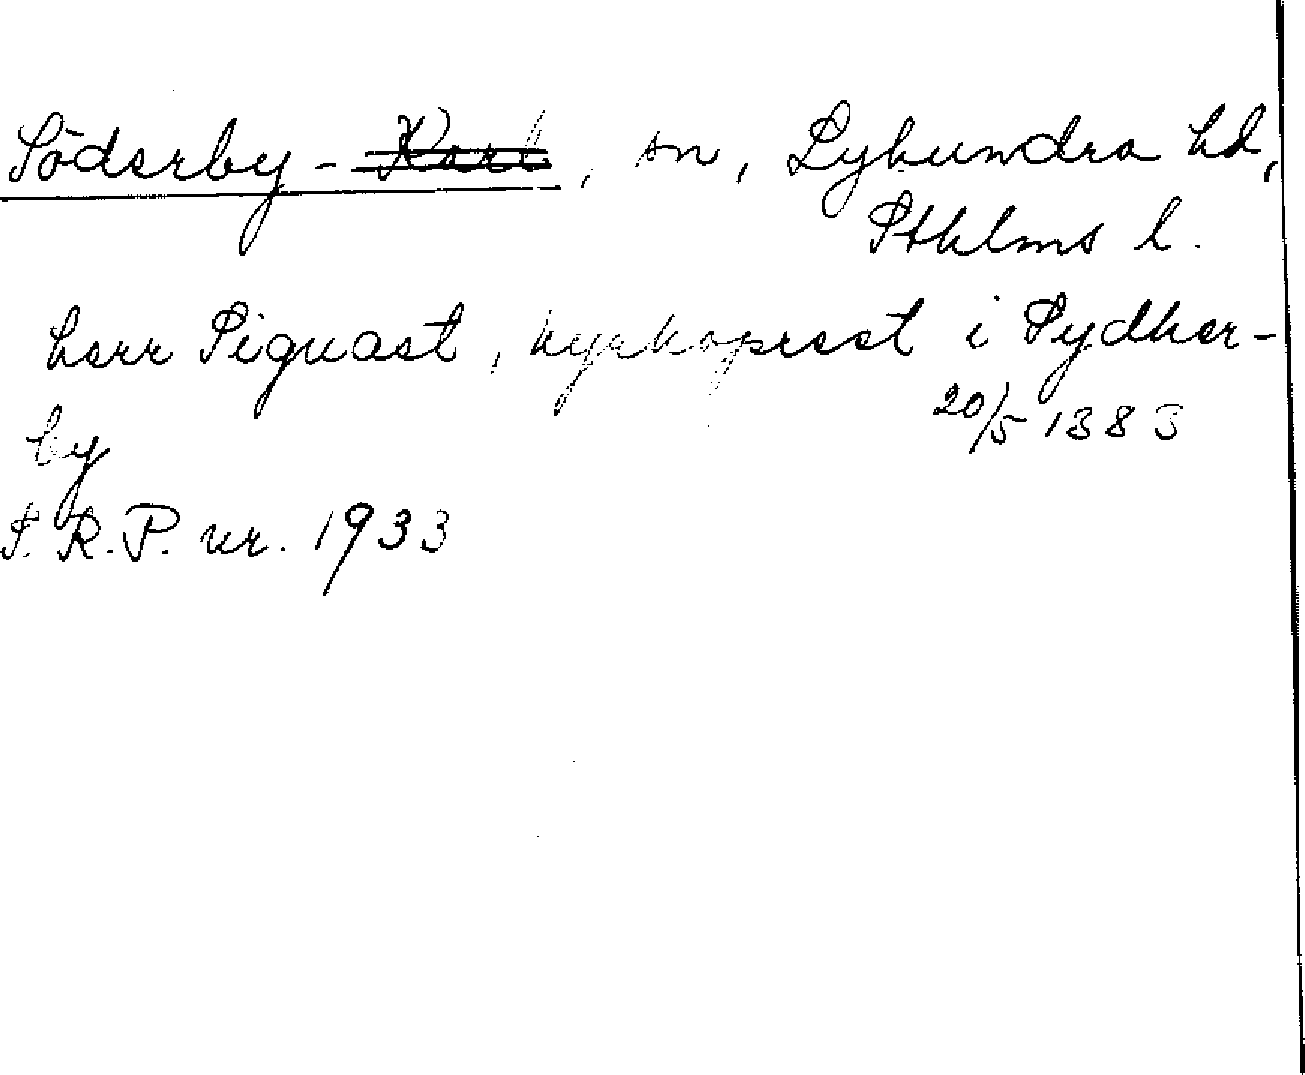 Söderby-Karl, sn, Lyhundra hd,
Sthlms l.
herr Siguast, kyrkoprest i Sydher-
by 20/5 1383
S.R.P. nr. 1933